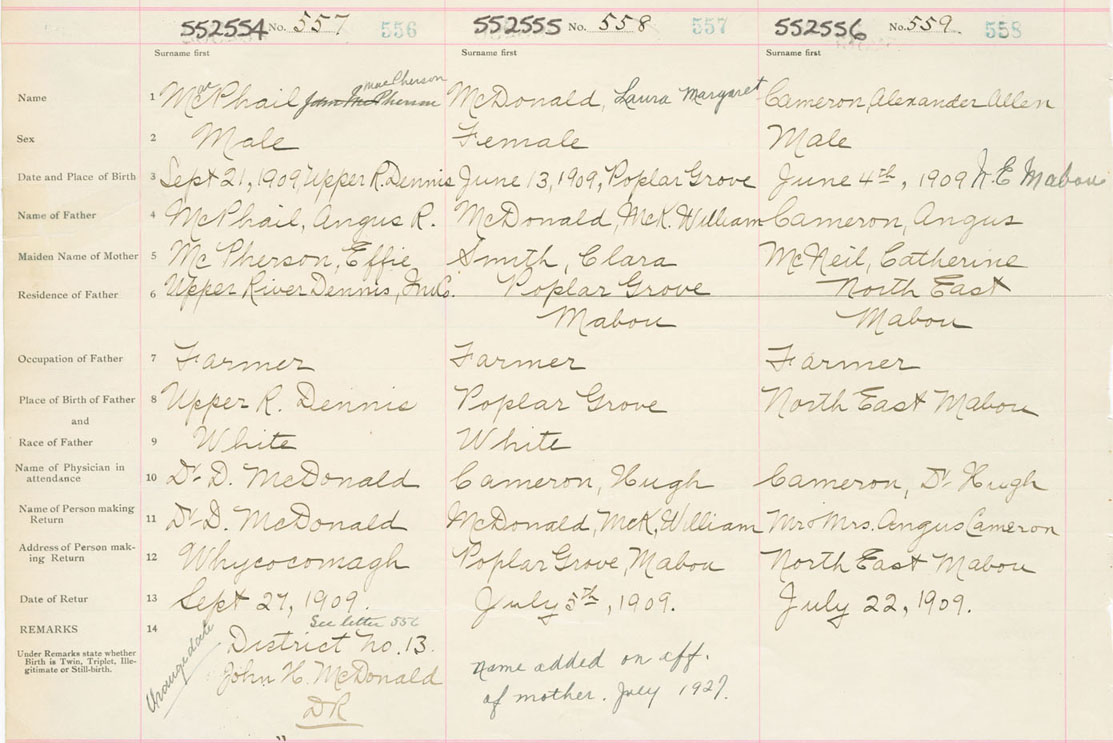 552554 No. 557 556 552555 No. 558 557 552556 No. 559 558
Surname first Surname first Surname first
Name 1 McPhail MacPherson McDonald, Laura Margaret Cameron, Alexander Allen
Sex 2 Male Female Male
Date and Place of Birth 3 Sept 21, 1909, Upper R. Dennis June 13, 1909, Poplar Grove June 4th, 1909 N.E Mabou
Name of Father 4 McPhail, Angus R. McDonald, McK. William Cameron, Angus
Maiden Name of Mother 5 McPherson, Effie Smith, Clara McNeil, Catherine
Residence of Father 6 Upper River Dennis, Inv.Co. Poplar Grove North East
Mabou Mabou
Occupation of Father 7 Farmer Farmer Farmer
Place of Birth of Father 8 Upper R. Dennis Poplar Grove North East Mabou
and
Race of Father 9 White White
Name of Physician in
attendance 10 Dr. D. McDonald Cameron, Hugh Cameron, Dr. Hugh
Name of Person making
Return 11 Dr. D. McDonald McDonald, McK, William Mr & Mrs. Angus Cameron
Address of Person mak-
ing Return 12 Whycocomagh Poplar Grove, Mabou North East Mabou
Date of Retur 13 Sept 27, 1909. July 5th, 1909. July 22, 1909.
See letter 556
REMARKS 14 District No. 13.
Under Remarks state whether
Birth is Twin, Triplet, Ille-
gitimate or Still-birth.
John H. McDonald
DR
Name added on aff.
of mother. July 1927.